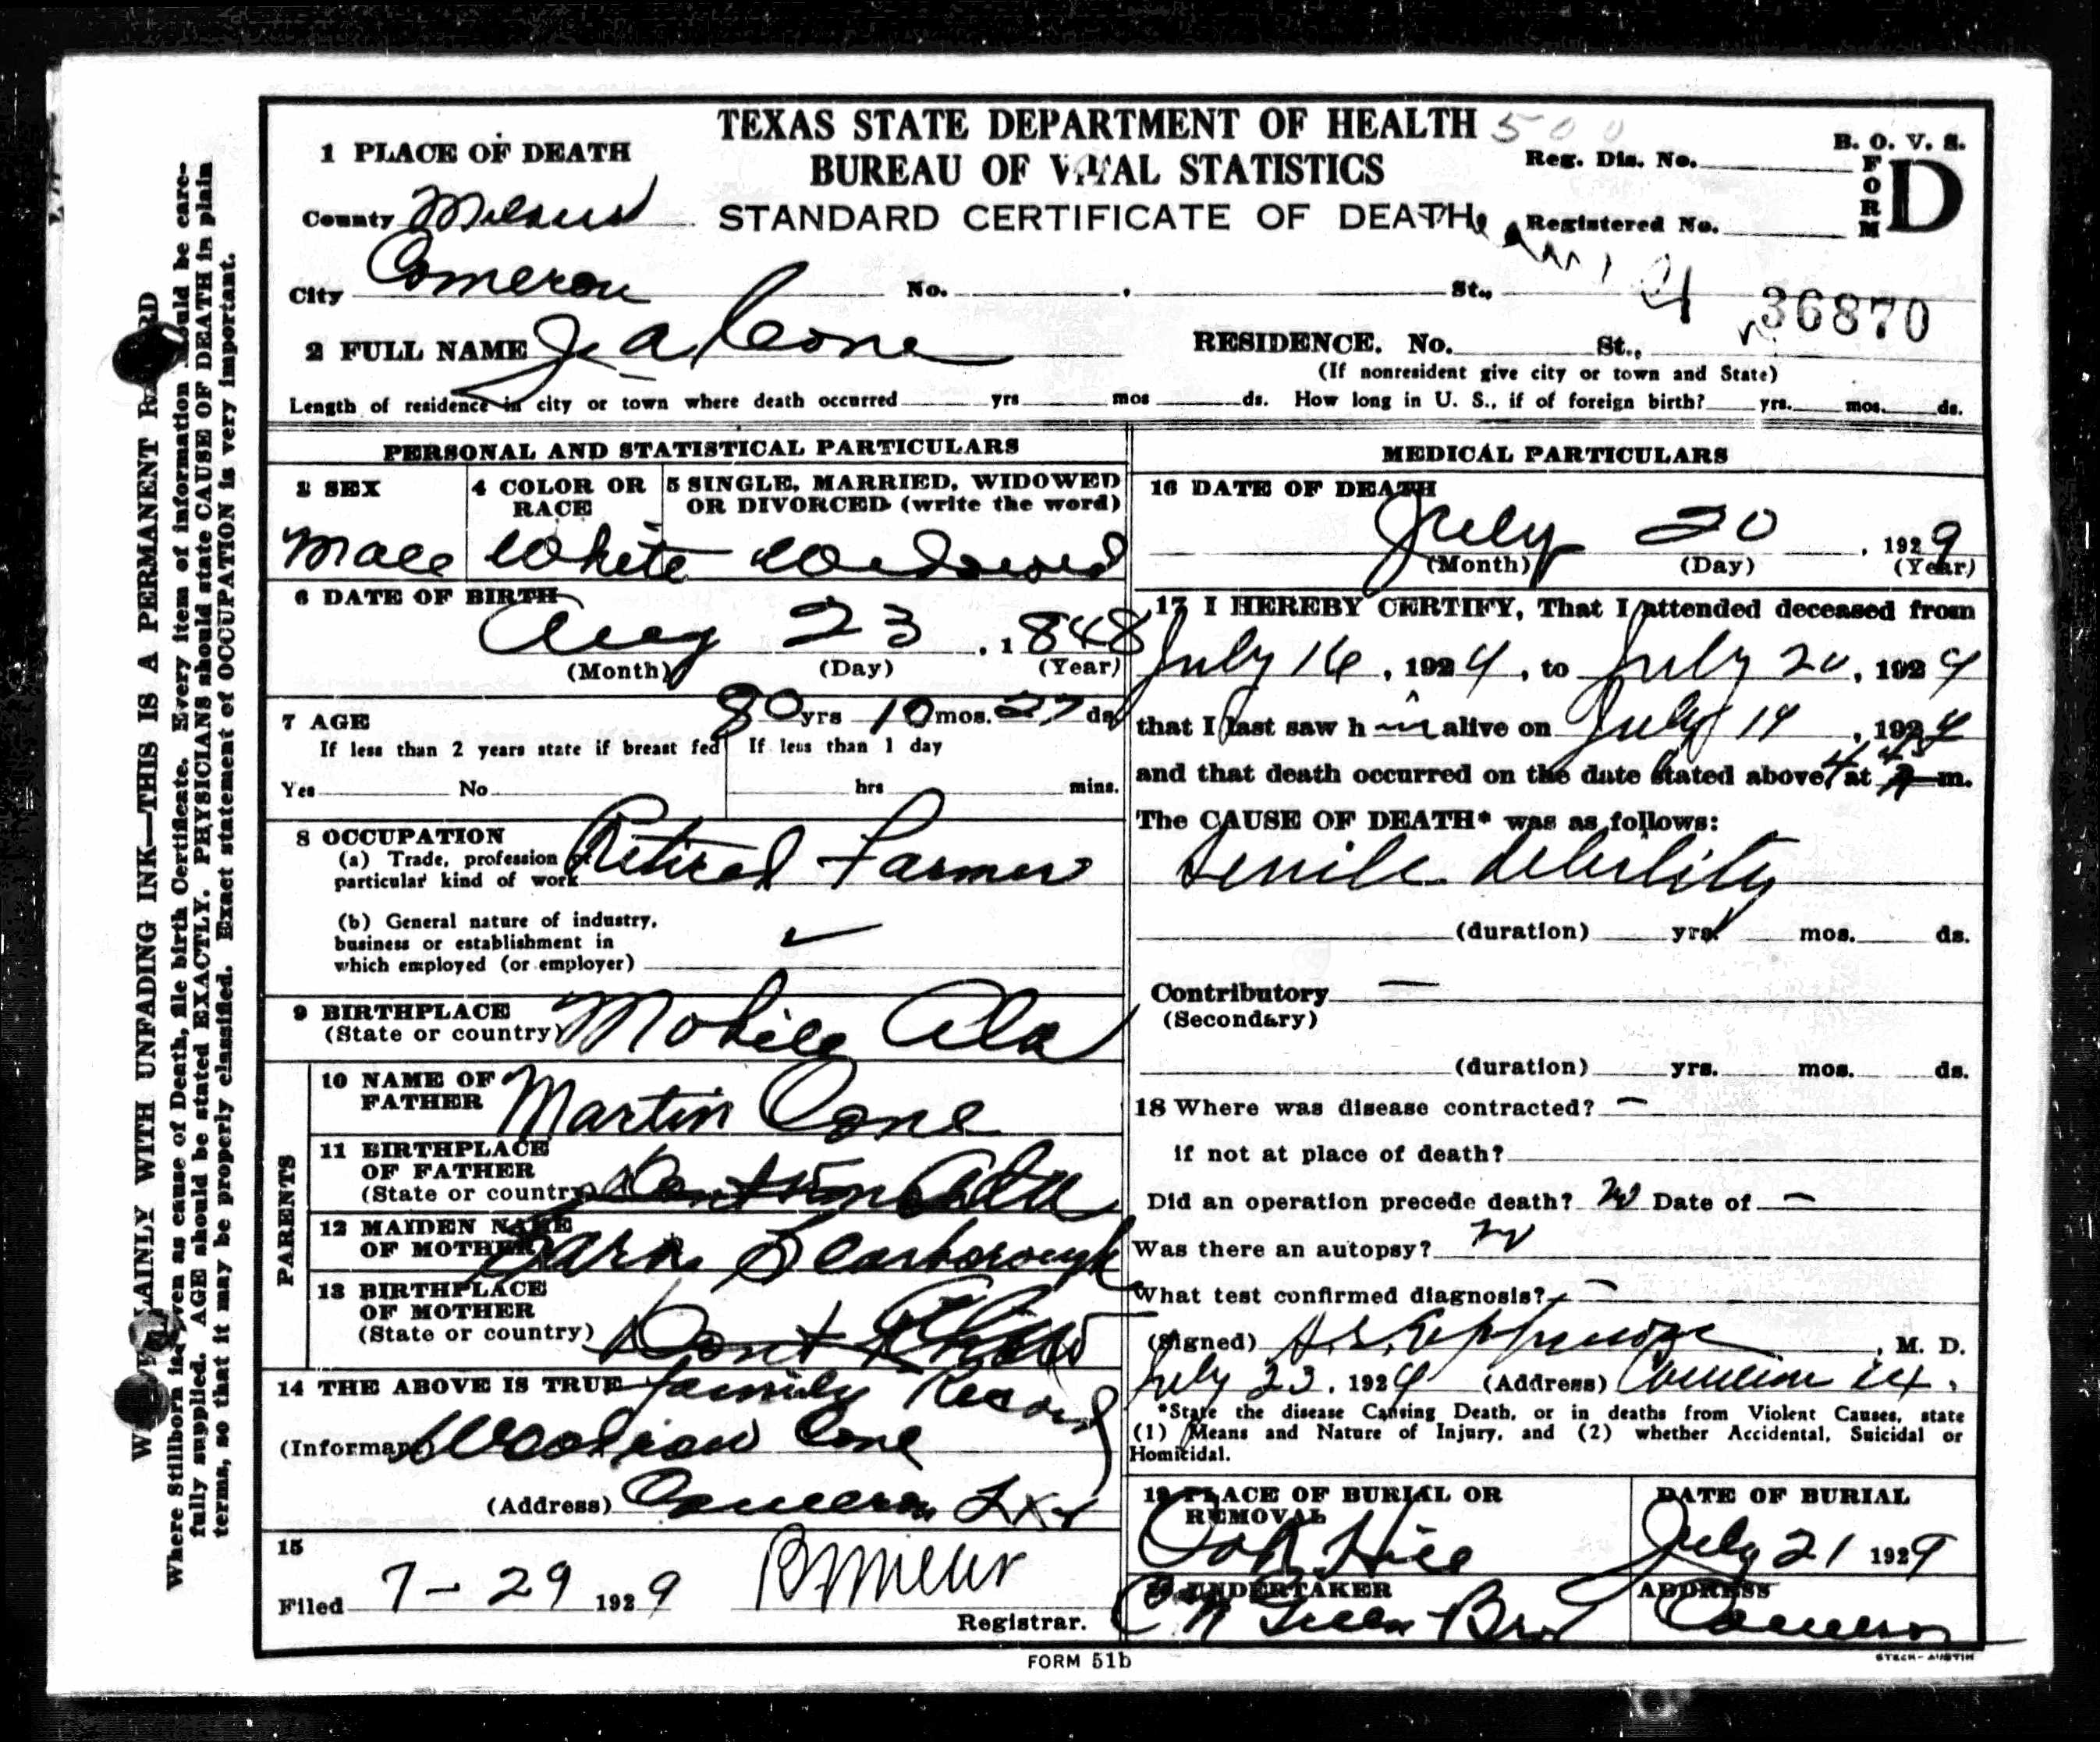 TEXAS STATE DEPARTMENT OF HEALTH 500
BUREAU OF VITAL STATISTICS
STANDARD CERTIFICATE OF DEATH
Reg. Dis. No.
Registered No.
B. O. V. S.
FORM D
1 PLACE OF DEATH
County
City Cameron No. St.,
36870
2 FULL NAME J. A. Cone
RESIDENCE. No. St.,
(If nonresident give city or town and State)
Length of residence in city or town where death occurred yrs mos ds. How long in U. S., if of foreign birth? yrs. mos. ds.
PERSONAL AND STATISTICAL PARTICULARS
3 SEX
Male
4 COLOR OR RACE
White
5 SINGLE, MARRIED, WIDOWED
OR DIVORCED (write the word)
Widowed
6 DATE OF BIRTH
Aug 23, 1848
(Month) (Day) (Year)
7 AGE 80 yrs 10 mos. 27 ds
If less than 2 years state if breast fed
If less than 1 day
Yes No hrs mins.
8 OCCUPATION
(a) Trade, profession or
particular kind of work Retired Farmer
(b) General nature of industry,
business or establishment in
which employed (or employer)
9 BIRTHPLACE
(State or country) Mobile Ala
PARENTS
10 NAME OF
FATHER Martin Cone
11 BIRTHPLACE
OF FATHER
(State or country)
12 MAIDEN NAME
OF MOTHER Scarborough
13 BIRTHPLACE
OF MOTHER
(State or country) Dont Know
14 THE ABOVE IS TRUE Family Record
(Informant) Cone
(Address) Cameron Tex
15
Filed 7-29 1929
Registrar.
MEDICAL PARTICULARS
16 DATE OF DEATH
July 20, 1929
(Month) (Day) (Year)
17 I HEREBY CERTIFY, That I attended deceased from
July 16, 1929, to July 20, 1929
that I last saw him alive on July 19, 1929
and that death occurred on the date stated above, at m.
The CAUSE OF DEATH* was as follows:
Senile debility
(duration) yrs. mos. ds.
Contributory —
(Secondary)
(duration) yrs. mos. ds.
18 Where was disease contracted? —
if not at place of death?
Did an operation precede death? no Date of —
Was there an autopsy? no
What test confirmed diagnosis? —
(Signed) , M. D.
July 23, 1929 (Address) Cameron Tex.
*State the disease Causing Death, or in deaths from Violent Causes, state
(1) Means and Nature of Injury, and (2) whether Accidental, Suicidal or
Homicidal.
19 PLACE OF BURIAL OR
REMOVAL
Oak Hill
DATE OF BURIAL
July 21 1929
20 UNDERTAKER
Green Bros
ADDRESS
Cameron
FORM 51b
STECK-AUSTIN
WRITE PLAINLY WITH UNFADING INK—THIS IS A PERMANENT RECORD
Where Stillborn is given as cause of Death, file birth Certificate. Every item of information should be care-
fully supplied. AGE should be stated EXACTLY. PHYSICIANS should state CAUSE OF DEATH in plain
terms, so that it may be properly classified. Exact statement of OCCUPATION is very important.